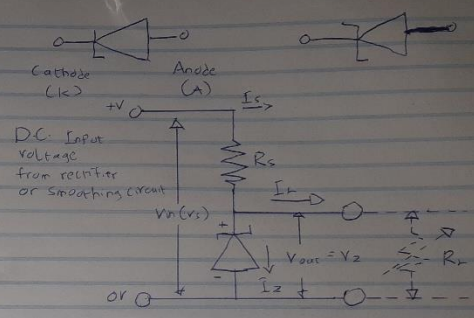 Cathode
(K)
Anode
(A)
+V
Is
D.C. Input
voltage
from rectifier
or smoothing circuit
Rs
IL
Vin(vs)
+
-
Vout = Vz
Iz
0V